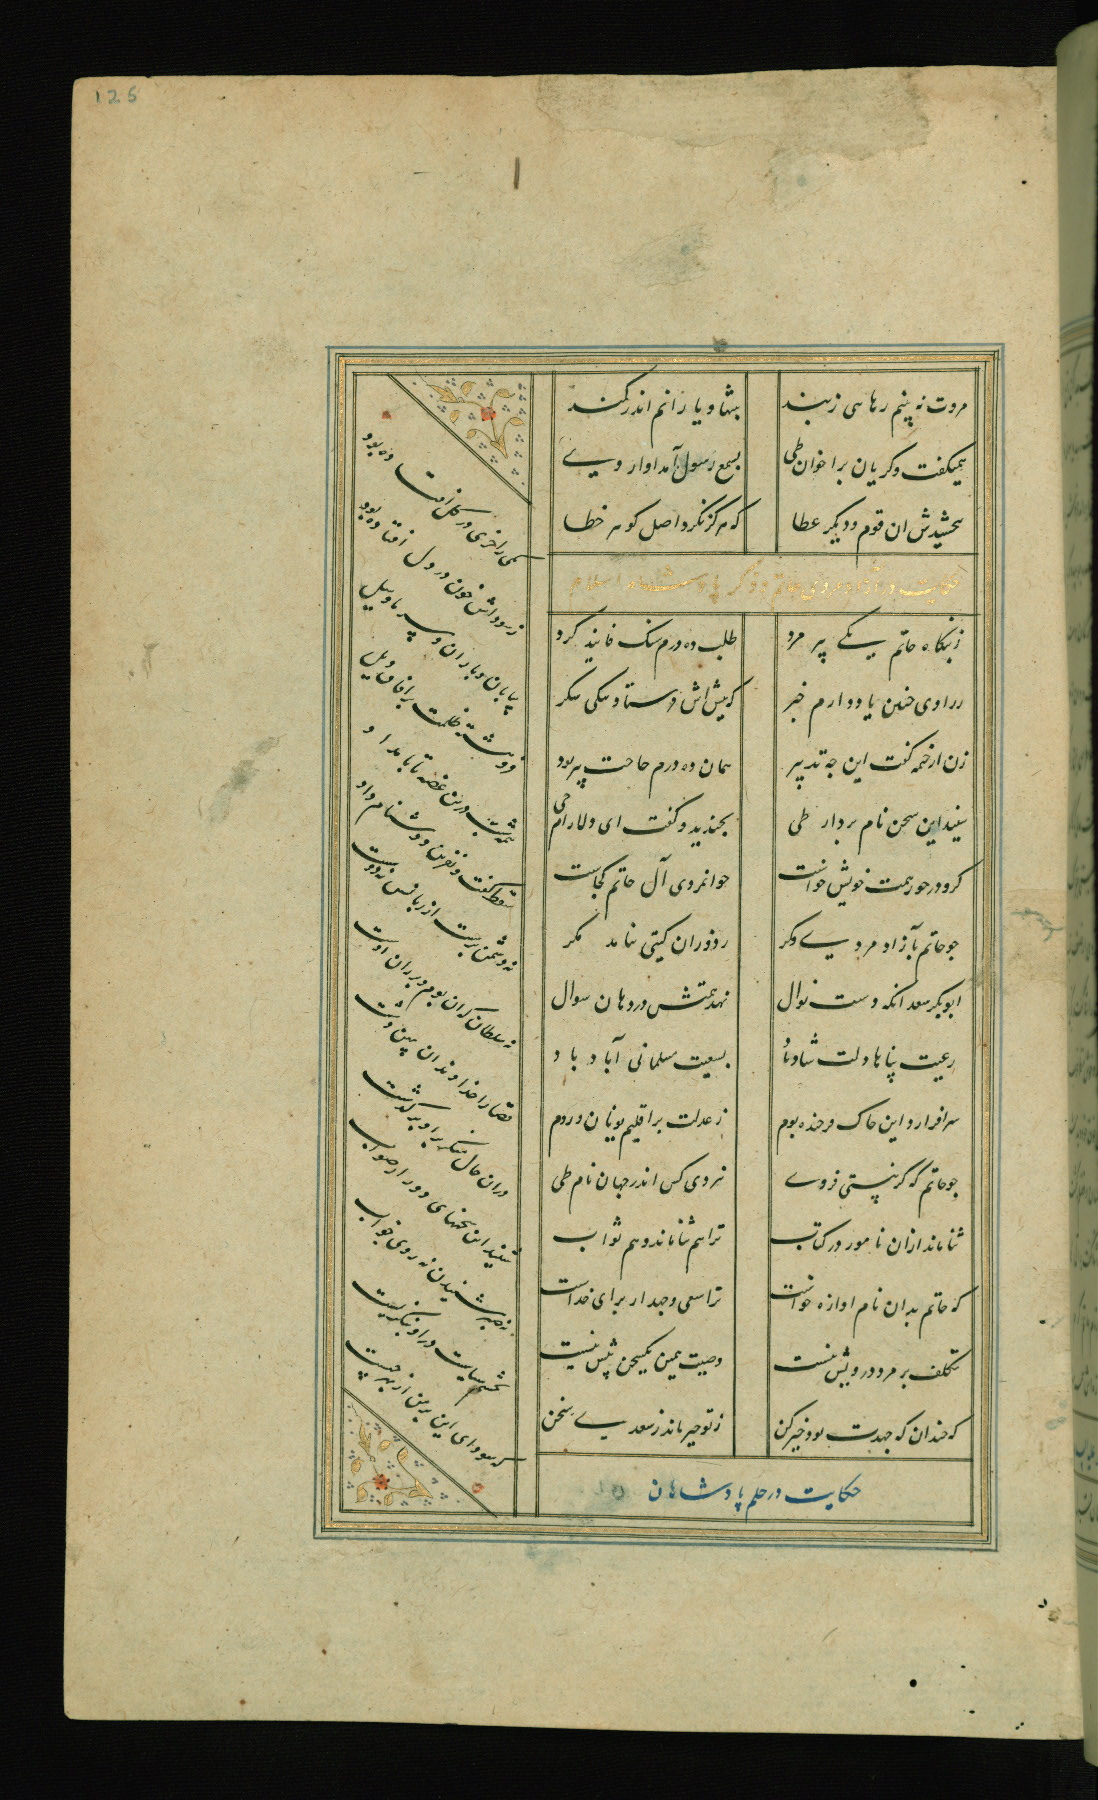 125
مروت نه بینم رهایی ز بند
بتنها و یارانم اندر کمند
همیگفت و گریان بر اخوان طی
بسمع رسول آمد آواز وی
ببخشیدش آن قوم و دیگر عطا
که هرگز نکرد اصل گوهر خطا
حکایت در آزادمردی حاتم و ذکر پادشاه اسلام
ز بنگاه حاتم یکی پیر مرد
طلب ده درم سنگ فانید کرد
ز راوی چنین یاد دارم خبر
که پیش اش فرستاد تنگی شکر
زن از خیمه گفت این چه تدبیر
همان ده درم حاجت پیر بود
شنید این سخن نام بردار طی
بخندید و گفت ای دلارام حی
گر او در خور همت خویش خواست
جوانمردی آل حاتم کجاست
چو حاتم بآزاد مردی دگر
ز دوران گیتی نیامد مگر
ابوبکر سعد آنکه دست نوال
نهد همتش در دهان سوال
رعیت پناها دلت شاد باد
بسعیت مسلمانی آباد باد
سرافرازد این خاک فرخنده بوم
ز عدلت بر اقلیم یونان و روم
چو حاتم که گر نیستی فر وی
نبردی کس اندر جهان نام طی
ثنا ماند از آن نامور در کتاب
ترا هم ثنا ماند و هم ثواب
که حاتم بدان نام و آوازه خواست
ترا سعی و جهد از برای خداست
تکلف بر مرد درویش نیست
وصیت همین یکسخن بیش نیست
که چندان که جهدت بود خیر کن
ز تو خیر ماند ز سعدی سخن
حکایت در حلم پادشاهان
یکی را خری در گل افتاده بود
ز سوداش خون در دل افتاده بود
بیابان و باران و سرما و سیل
فرو هشته ظلمت بر آفاق ذیل
همه شب درین غصه تا بامداد
سقط گفت و نفرین و دشنام داد
نه دشمن برست از زبانش نه دوست
نه سلطان که آن بوم و بر زان اوست
قضا را خداوند آن پهن دشت
در آن حال منکر برو بر گذشت
شنید این سخنهای دور از صواب
نه صبر شنیدن نه روی جواب
بچشم سیاست در او بنگریست
که سودای این بر من از بهر چیست